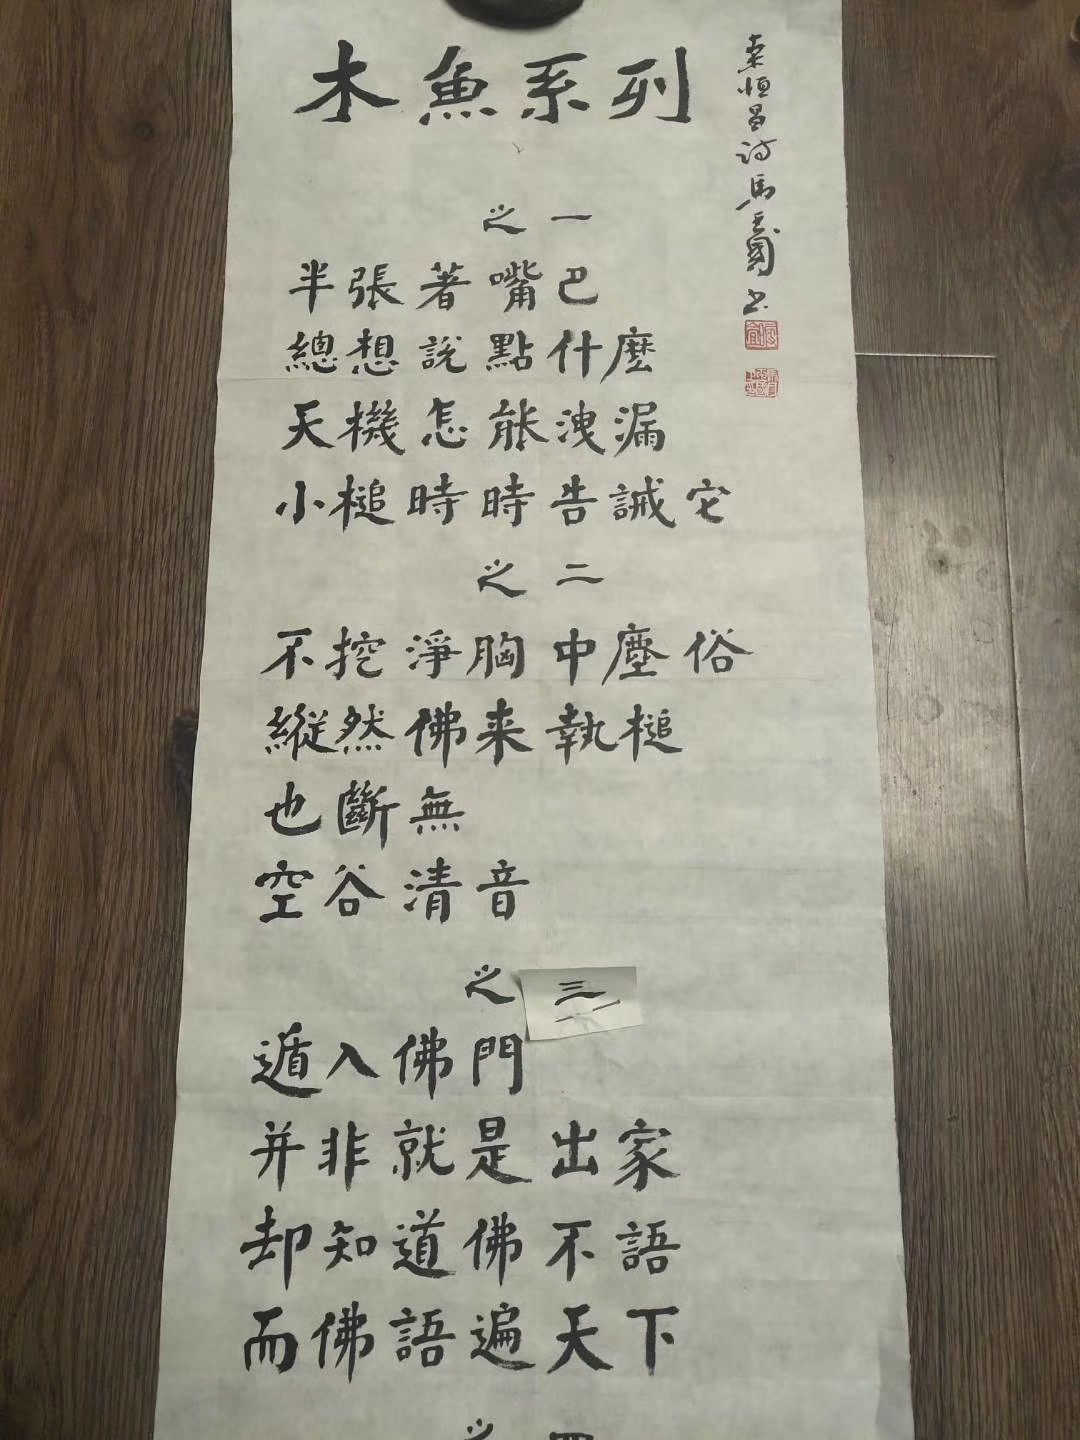 木魚系列
桒恒昌诗馬
书
之一
半張著嘴巴
總想説點什麽
天機怎能洩漏
小槌時時告誡它
之二
不挖淨胸中塵俗
縱然佛来執槌
也斷無
空谷清音
之三
遁入佛門
并非就是出家
却知道佛不語
而佛語遍天下
之四